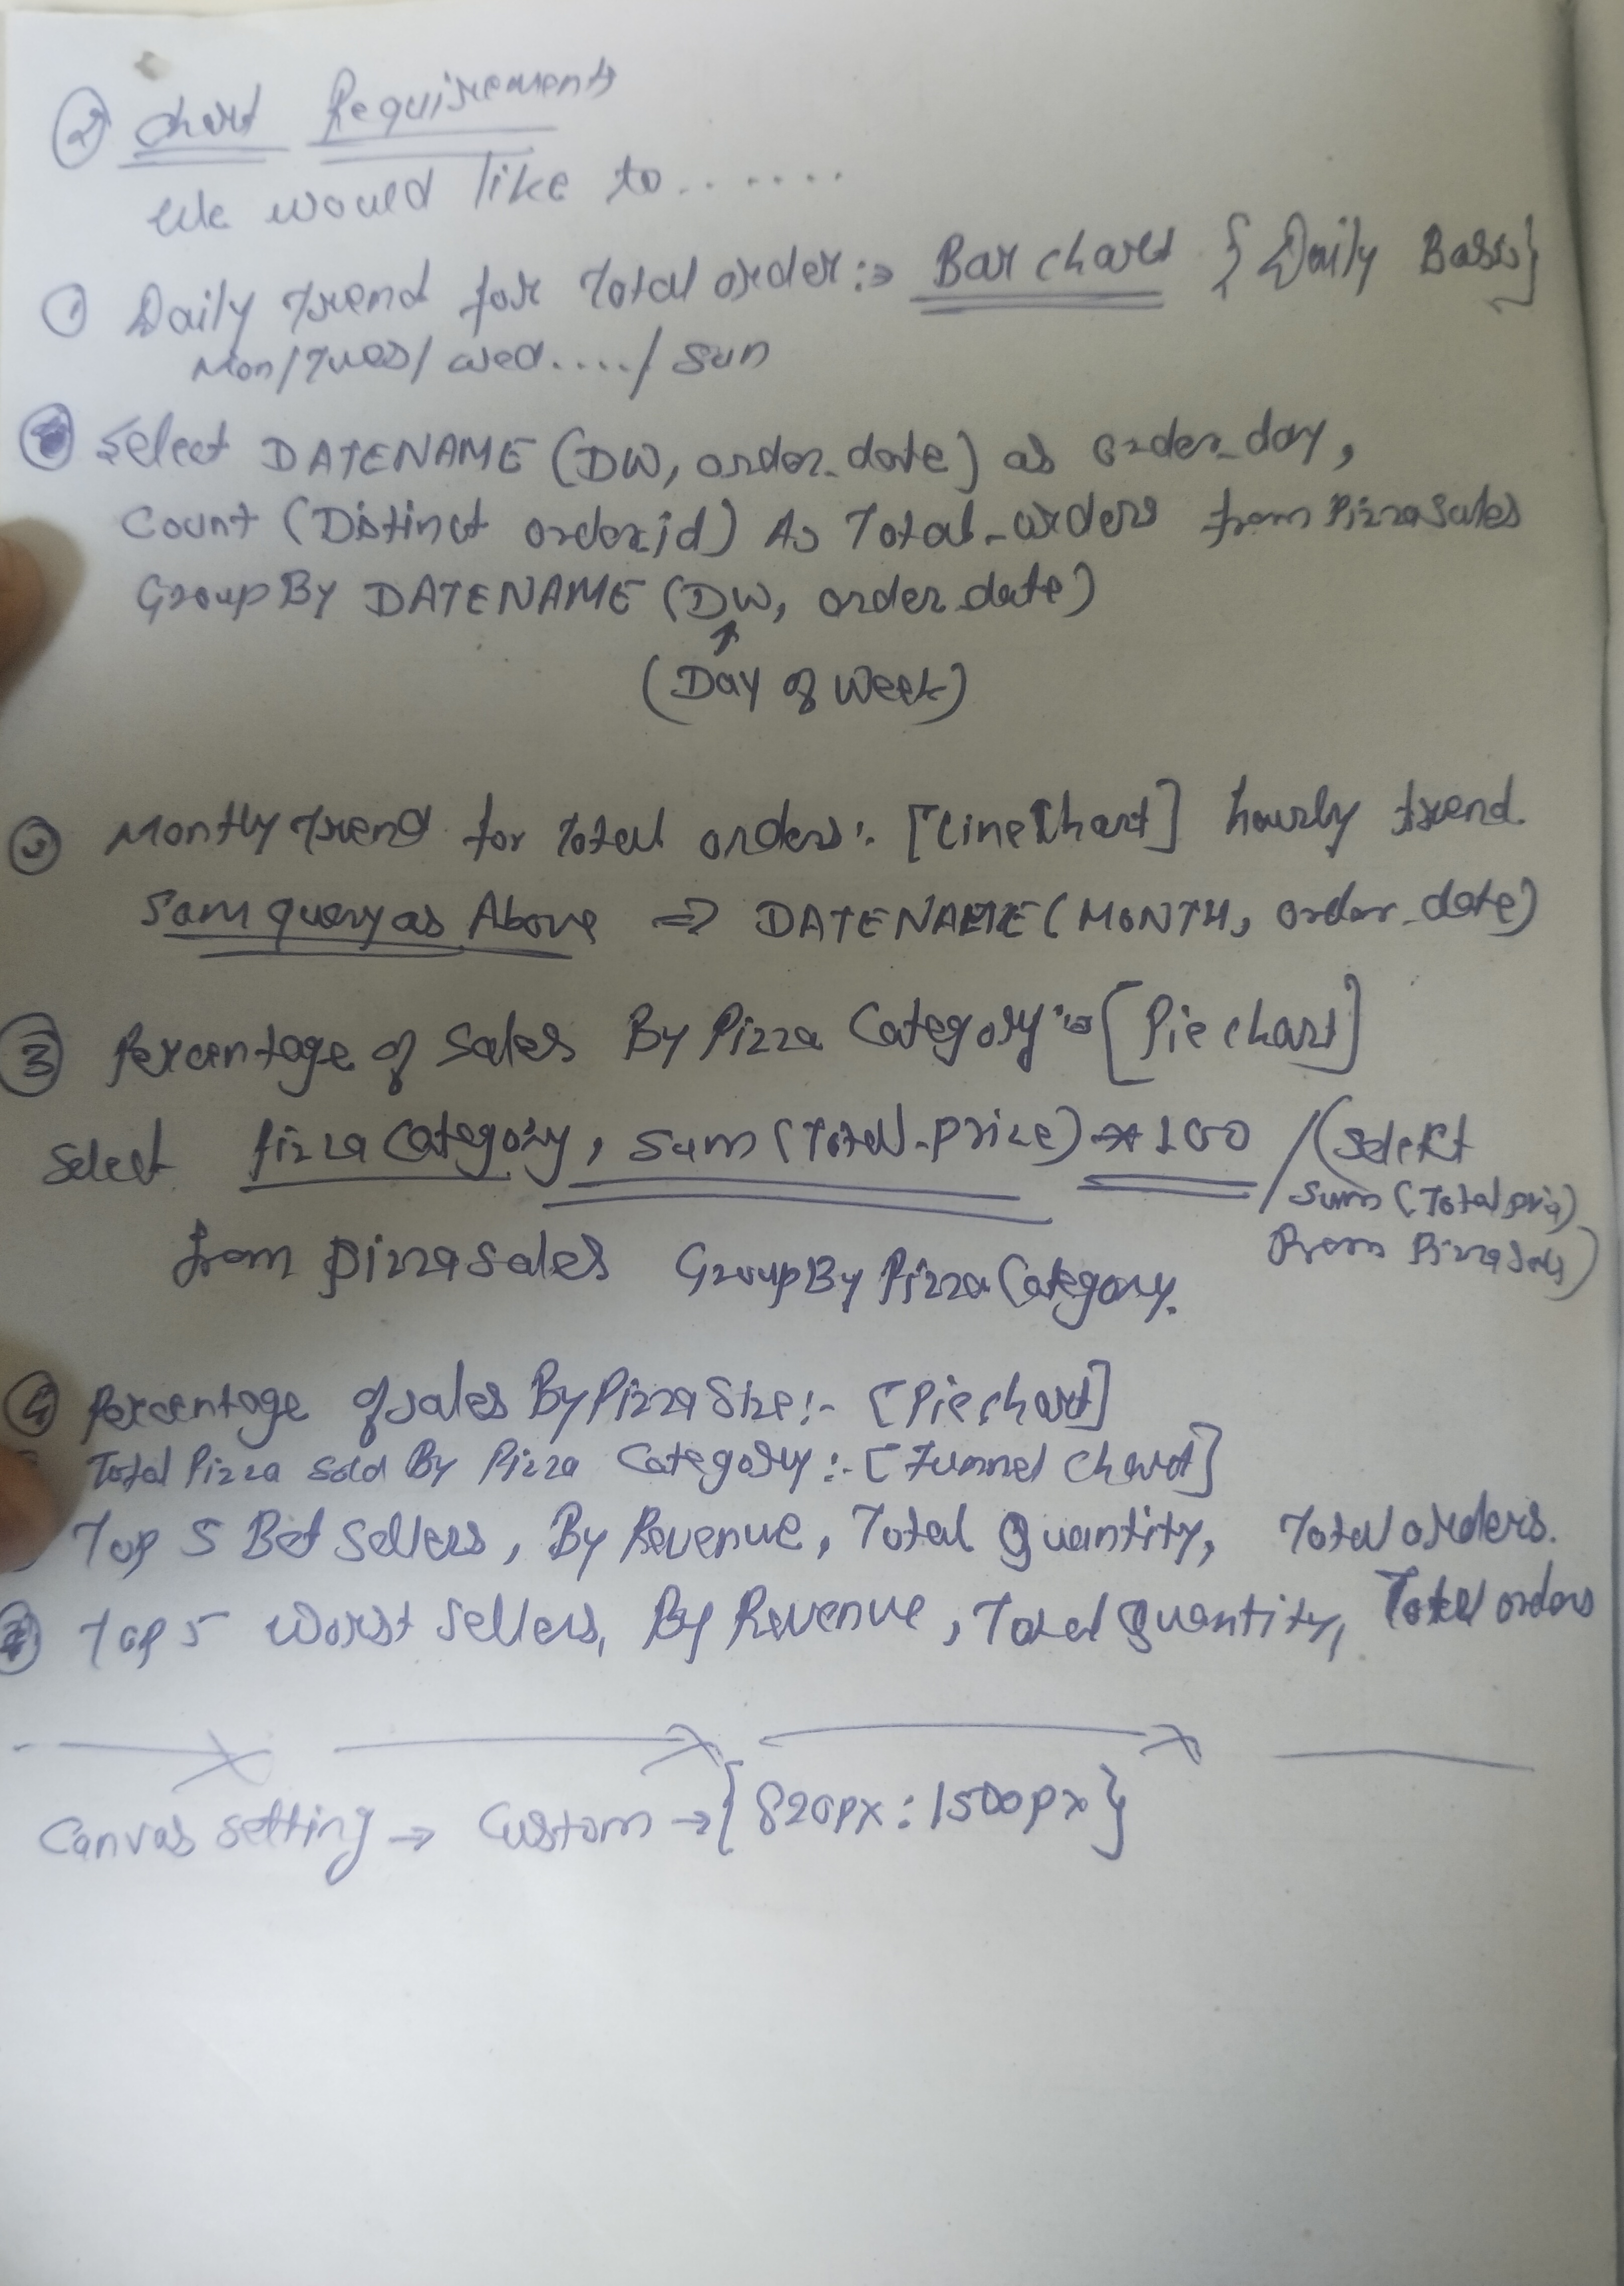 ② Chart Requirements
We would like to.......
① Daily Trend for Total order :→ Bar chart { Daily Basis}
Mon/Tues/ wed..../ Sun
Select DATENAME (DW, order_date) as order_day,
Count (Distinct order_id) As Total_orders from Pizzasales
Group By DATENAME (DW, order_date)
(Day of Week)
② Montly Trend for Total orders:. [Line Chart] hourly trend.
Sam query as Above => DATENAME (MONTH, order_date)
③ Percentage of Sales By Pizza Category :- [Pie chart]
Select Pizza Category, Sum (Total_price) * 100 / (Select
Sum (Total pric)
From Pizza Sales)
from pizza sales Group By Pizza Category.
④ Percentage of sales By Pizza Size :- [Pie chart]
Total Pizza Sold By Pizza Category :- [Funnel Chart]
Top 5 Bet Sellers, By Revenue, Total Quantity, Total orders.
Top 5 Worst Sellers, By Revenue, Total Quantity, Total orders
Canvas setting → Custom → {820px : 1500px}